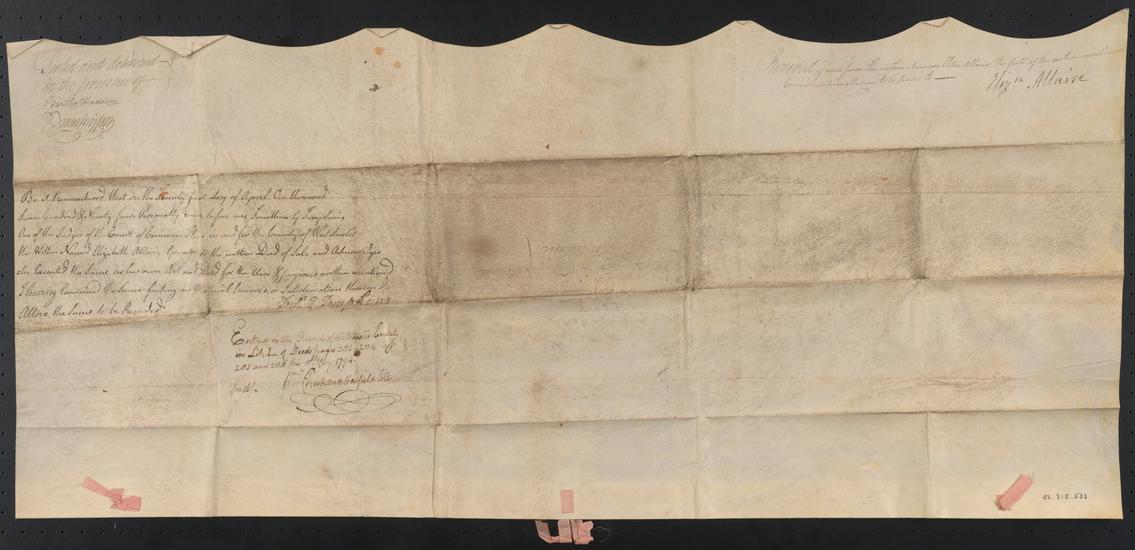 Sealed and delivered
in the presence of
Bartho Hadden
Received of and from the within Named Peter Allaire the full of the within mentd
Consideration Money to be paid to
Elizth Allaire
Be it Remembered that on the Twenty first day of April One thousand
Seven hundred & Ninety four Personally came before me Jonathan G Tompkins
One of the Judges of the Court of Common Pleas in and for the County of Westchester
the Within Named Elizabeth Allaire to the within Deed of Sale and Acknowledged
she Executed the Same as her own Act and Deed for the Uses & purposes within mentioned
I having Examined the Same finding no Material Erasures or Interlineation therein Do
Allow the Same to be Recorded
Jonn G. Tompkins
Entred in the Records of Westchester County
in Lib. L. of Deeds pages 203, 204
205 and 206 this May 1794.
Richard Hatfield Clk
42.315.533